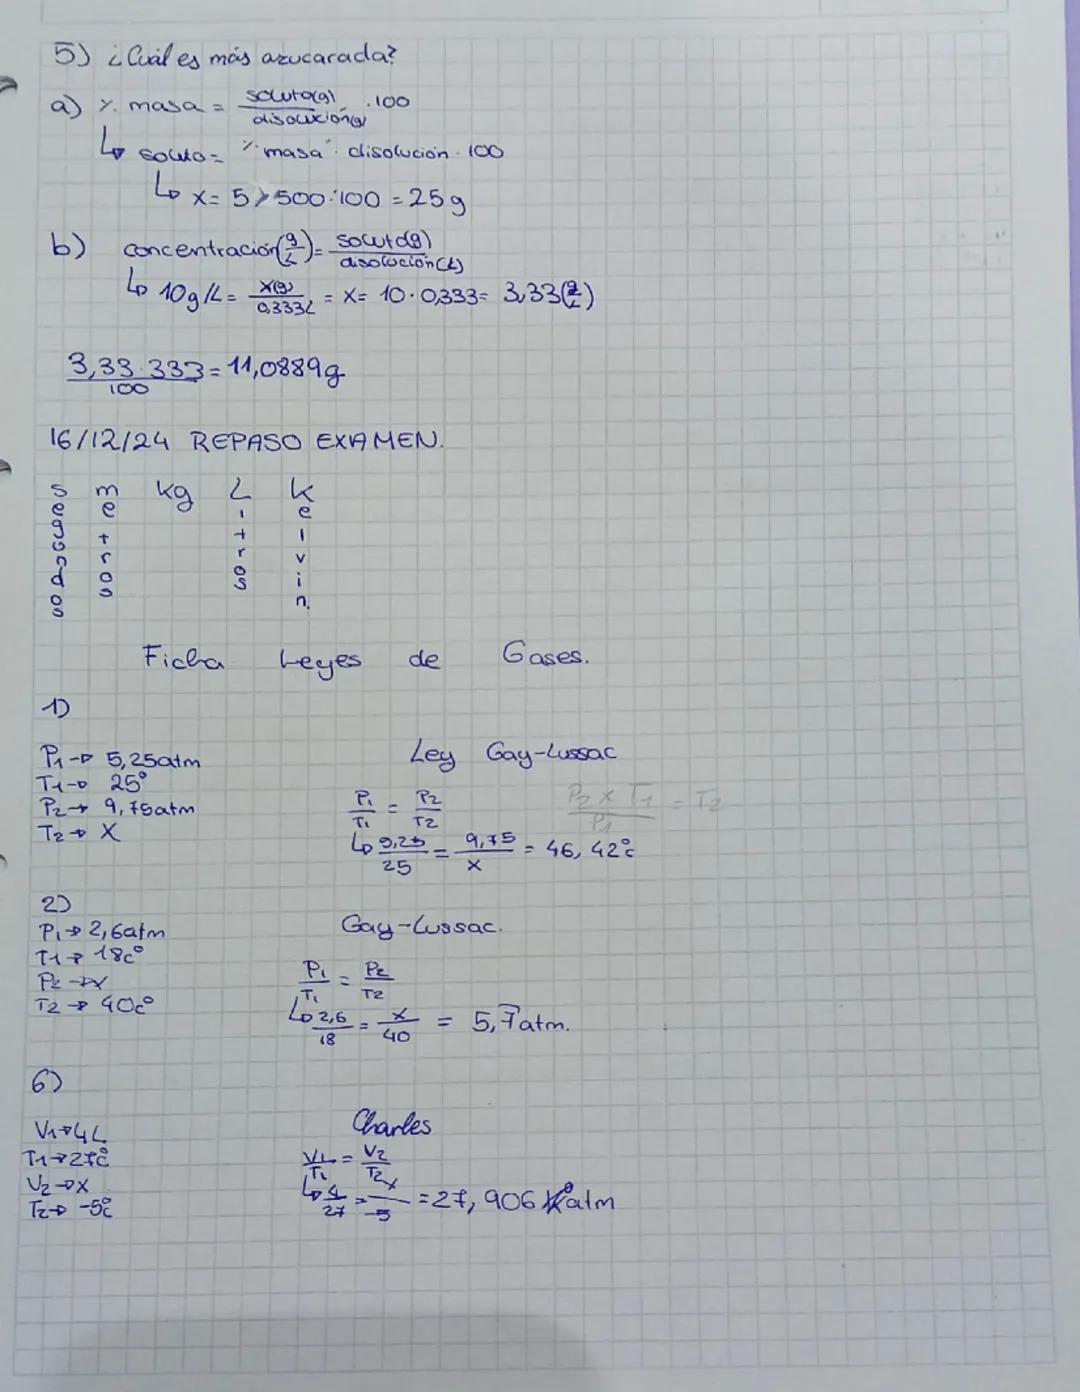 5) ¿Cuál es más azucarada?
a) % masa = soluto(g) / disolución(g) · 100
↳ soluto = % masa · disolución · 100
↳ x = 5 · 500 : 100 = 25 g
b) concentración (g/L) = soluto(g) / disolución(L)
↳ 10g/L = x(g) / 0,333L = x = 10 · 0,333 = 3,33 (g/L)
3,33 · 333 / 100 = 11,0889g
16/12/24 REPASO EXAMEN.
segundos metros kg Litros Kelvin.
Ficha Leyes de Gases.
1)
P1 → 5,25atm
T1 → 25°
P2 → 9,75atm
T2 → X
Ley Gay-Lussac
P1/T1 = P2/T2
P2 x T1 / P1 = T2
↳ 5,25/25 = 9,75/x = 46,42°c
2)
P1 → 2,6atm
T1 → 18c°
P2 → x
T2 → 40c°
Gay-Lussac.
P1/T1 = P2/T2
↳ 2,6/18 = x/40 = 5,7atm.
6)
V1 → 4L
T1 → 27°c
V2 → x
T2 → -5°c
Charles
V1/T1 = V2/T2
↳ 4/27 = x/-5 = 27,906 atm